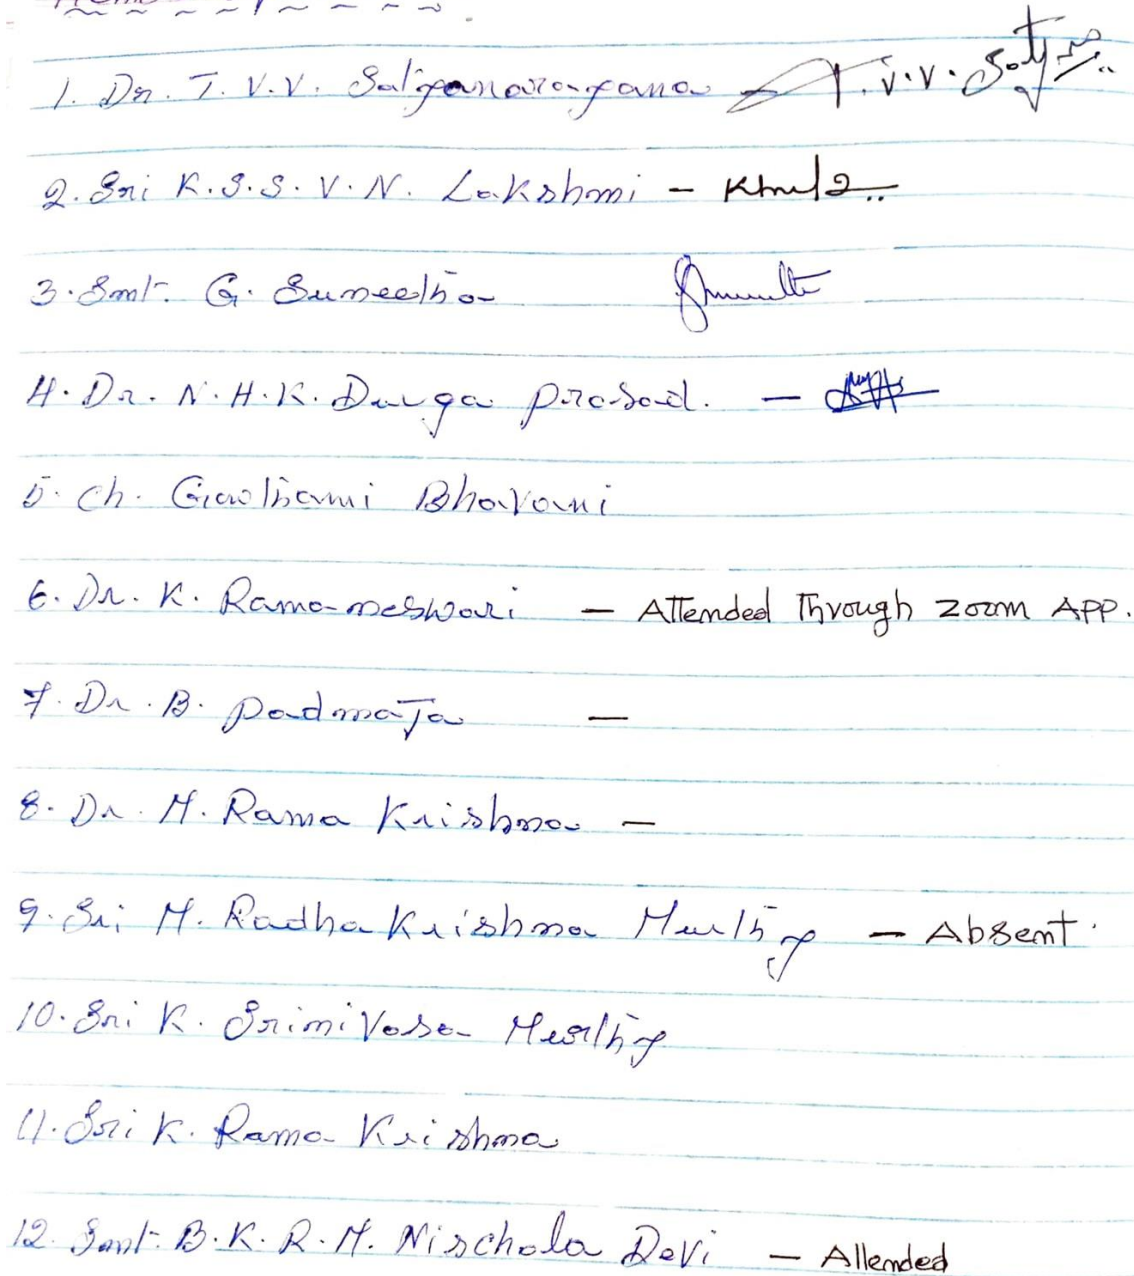 1. Dr. T. V. V. Satyanarayana T. V. V. Saty
2. Sri K. S. S. V. N. Lakshmi -
3. Smt. G. Suneetha
4. Dr. N. H. K. Durga Prasad. -
5. Ch. Gowthami Bhavani
6. Dr. K. Rama-neswari - Attended Through Zoom App.
7. Dr. B. Padmaja -
8. Dr. M. Rama Krishna -
9. Sri M. Radha Krishna Murthy - Absent.
10. Sri K. Srinivasa Murthy
11. Sri K. Rama Krishna
12. Smt. B. K. R. M. Nischala Devi - Attended